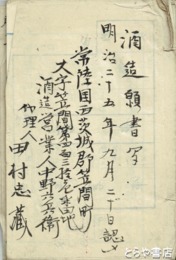 酒造願書写
明治二十五年九月二十日認
常陸国西茨城郡笠間町
大字笠間
酒造営業人中野六兵衛
代理人
田村忠蔵
とらや書店